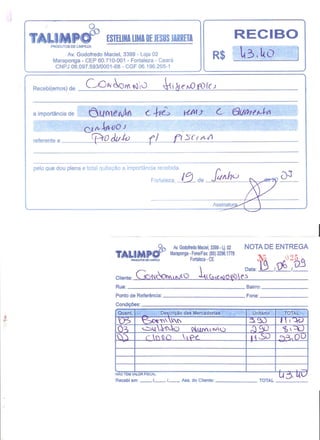 TALIMPO
PRODUTOS DE LIMPEZA
ESTELINA LIMA DE JESUS JARRETA
RECIBO
Av. Godofredo Maciel, 3399 - Loja 02
Maraponga - CEP 60.710-001 - Fortaleza - Ceará
R$ 43,40
Recebi(emos) de Condominio
a importância de Quarenta e três reais e Quarenta
centavos
referente a Produto p/ Piscina
pelo que dou plena e total quitação a importância recebida
Fortaleza, 19 de Junho de 09
Assinatura
TALIMPO
PRODUTOS DE LIMPEZA
Av. Godofredo Maciel, 3399 - Lj. 02
Fortaleza - CE
NOTA DE ENTREGA
Data: 19 06 09
Cliente: Condominio
Rua:
Bairro:
Ponto de Referência:
Fone:
Condições:
Quant. Descrição das Mercadorias Unitário TOTAL
03 3,90 11,70
03 Sulfato Aluminio
02 Cloro 11,50 23,00
NÃO TEM VALOR FISCAL
43,40
Recebi em: Ass. do Cliente: TOTAL